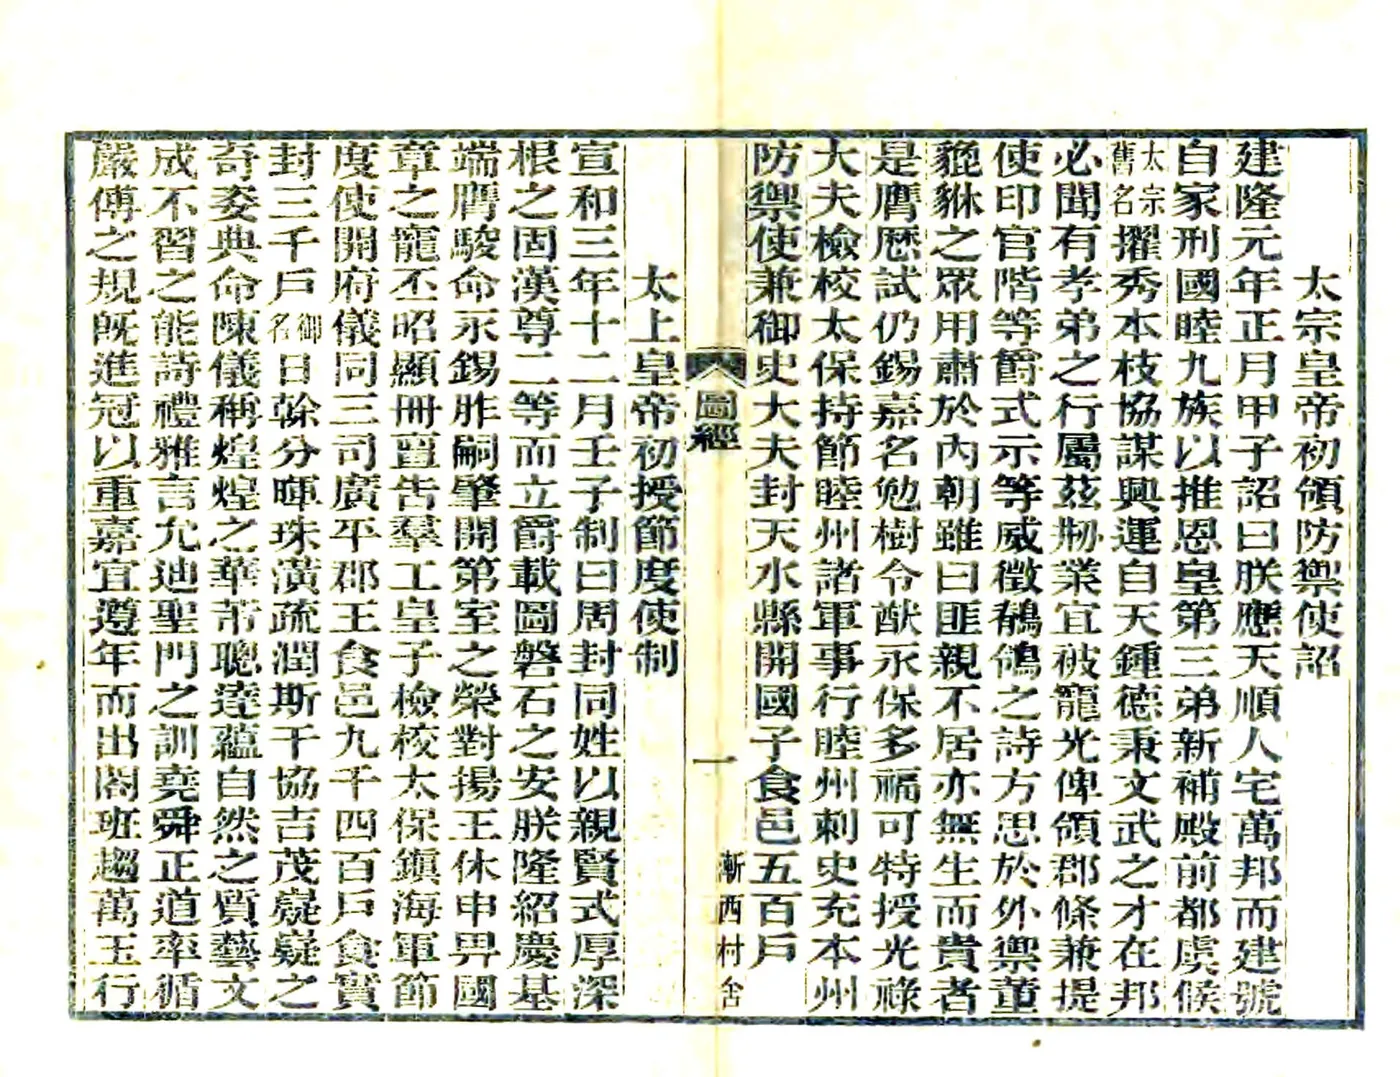 太宗皇帝初領防禦使詔
建隆元年正月甲子詔曰朕應天順人宅萬邦而建號
自家刑國睦九族以推恩皇第三弟新補殿前都虞候
太宗舊名擢秀本枝協謀興運自天鍾德秉文武之才在邦
必聞有孝弟之行屬茲刱業宜被寵光俾領郡條兼提
使印官階等爵式示等威徵鶺鴒之詩方思於外禦董
貔貅之眾用肅於內朝雖曰匪親不居亦無生而貴者
是膺歷試仍錫嘉名勉樹令猷永保多福可特授光祿
大夫檢校太保持節睦州諸軍事行睦州刺史充本州
防禦使兼御史大夫封天水縣開國子食邑五百戶
圖經
一
漸西村舍
太上皇帝初授節度使制
宣和三年十二月壬子制曰周封同姓以親賢式厚深
根之固漢尊二等而立爵載圖磐石之安朕隆紹慶基
端膺駿命永錫胙嗣肇開第室之榮對揚王休申畀國
章之寵丕昭顯冊亶告羣工皇子檢校太保鎮海軍節
度使開府儀同三司廣平郡王食邑九千四百戶食實
封三千戶御名日榦分暉珠潢疏潤斯干協吉茂嶷嶷之
奇委典命陳儀稱煌煌之華芾聰達蘊自然之質藝文
成不習之能詩禮雅言允迪聖門之訓堯舜正道率循
嚴傅之規旣進冠以重嘉宜遵年而出閤班趨萬玉行